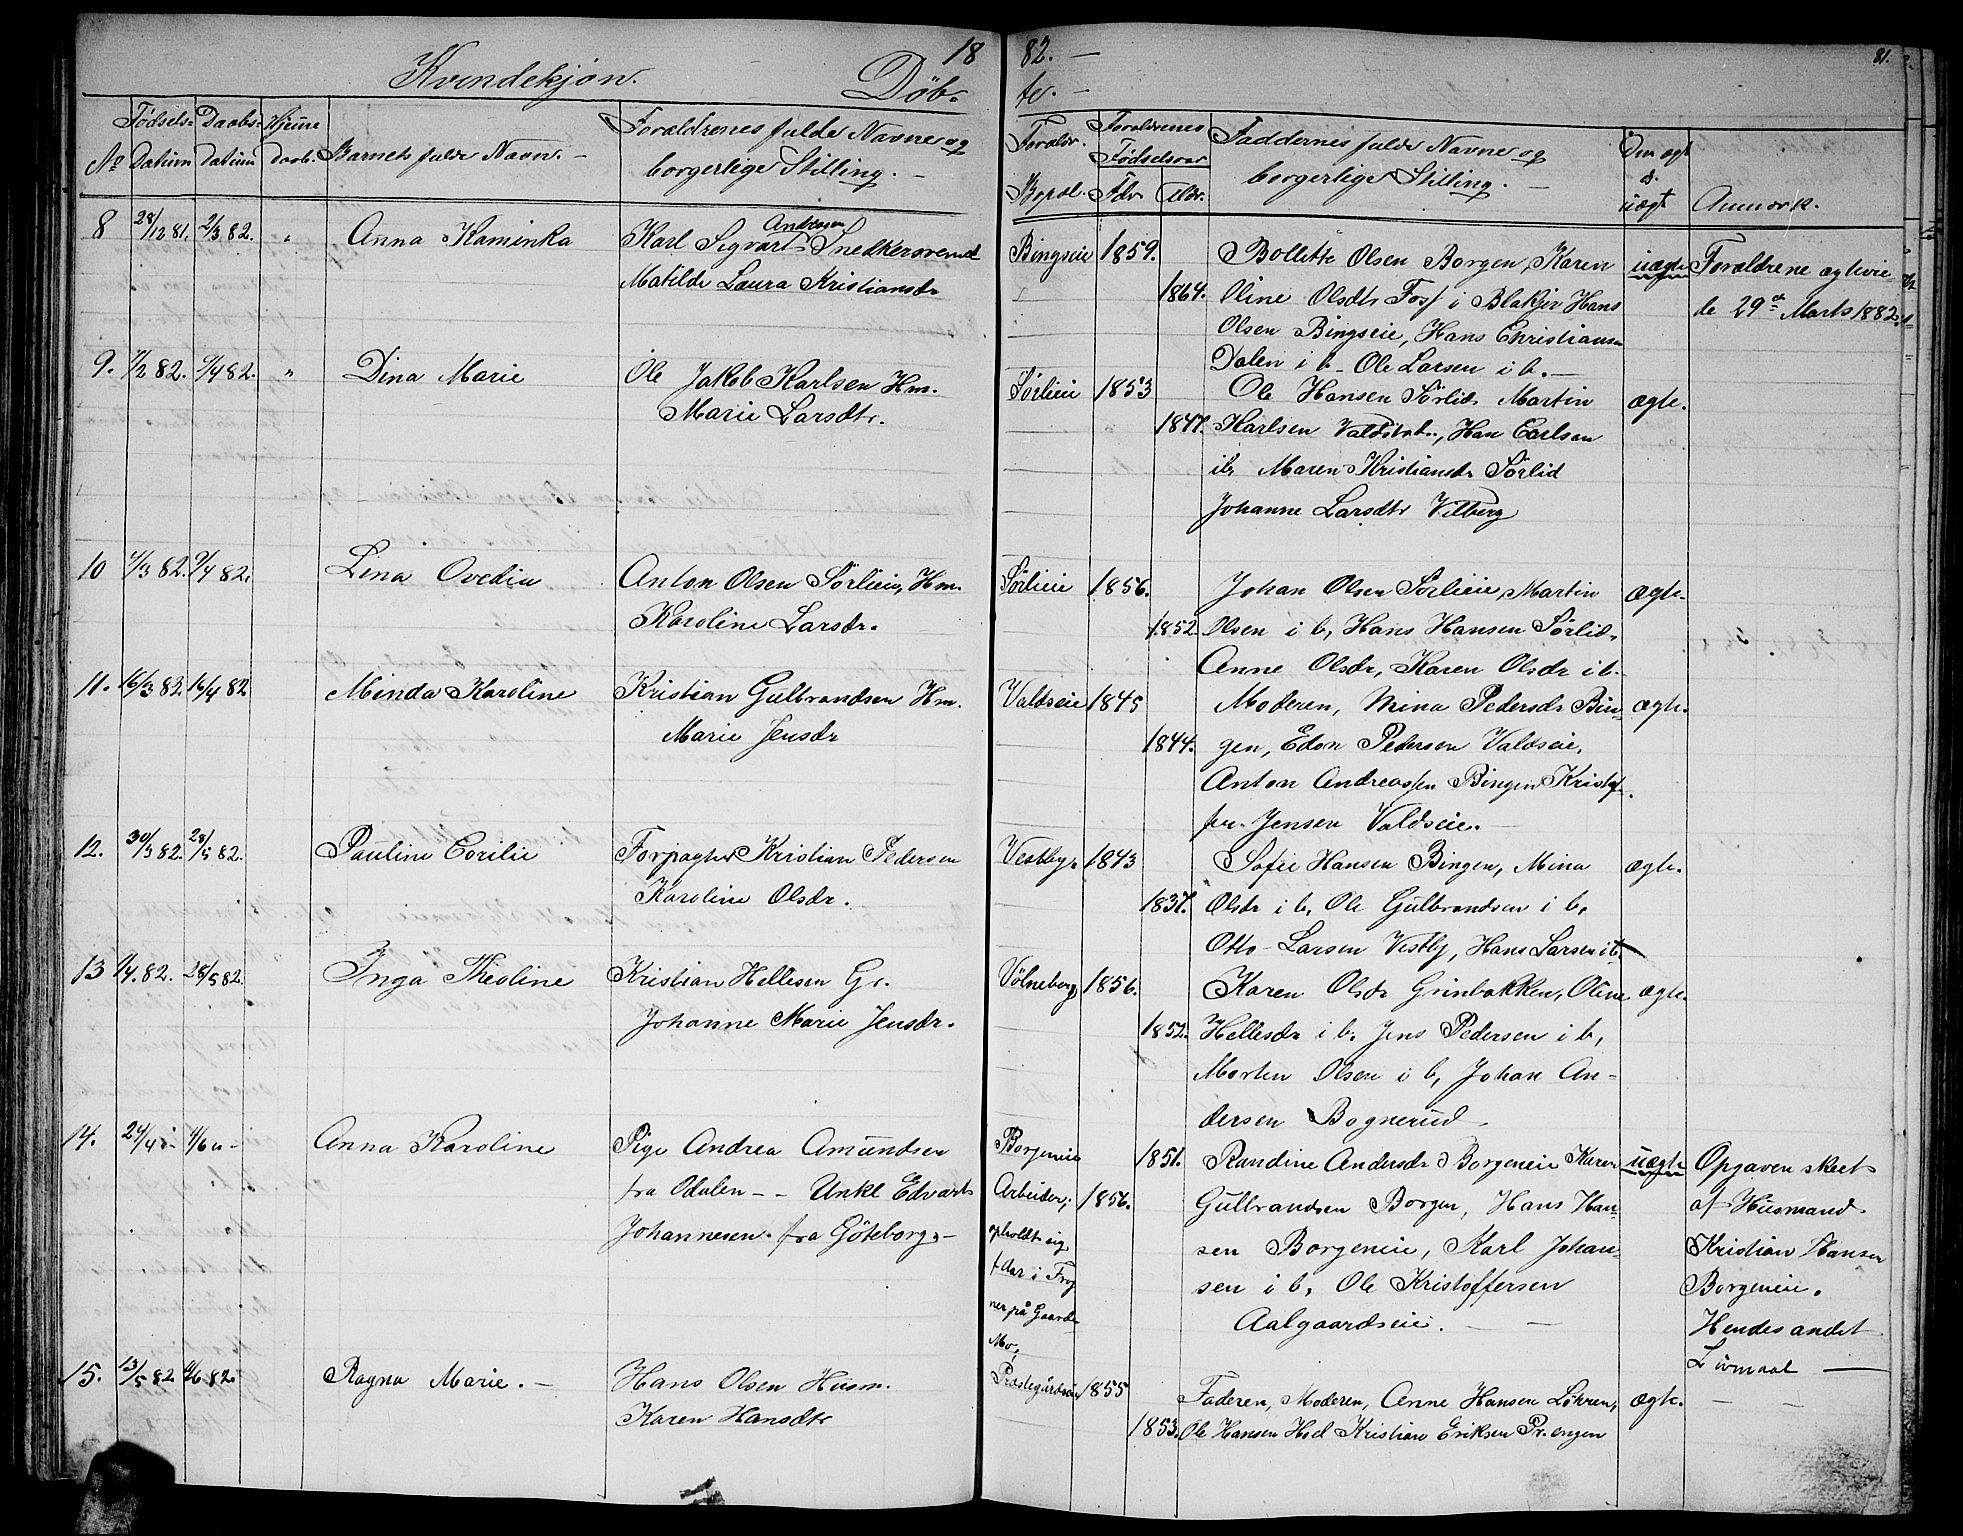 18 82. — 81.
Kvindekjøn. Døb- te. -
No Fødsels-Datum Daabs-datum Hjemmedaab. Barnets fulde Navn. — Forældrenes fulde Navne og borgerlige Stilling. — Forældr. Bopæl. Forældrenes Fødselsaar Fdr. Mdr. Faddernes fulde Navne og borgerlige Stilling. — Om ægt. el. uægt Anmærk.
8 28/12 81. 2/3 82. " Anna Kaminka Karl Sigvart Andresen Snedkersvend Bingseie 1859. Bollette Olsen Borgen, Karen uægte Forældrene egtevie
Matilde Laura Kristiansdr 1864. Oline Olsdtr Foss i Blakjer Hans de 29de Marts 1882.
Olsen Bingseie, Hans Christiansen
Dalen i b. Ole Larsen i b. —
9. 7/2 82. 9/4 82. " Dina Marie Ole Jakob Karlsen Hm. Sørlieie 1853 Ole Hansen Sørlie, Martin ægte.
Marie Larsdtr. 1847. Karlsen Valdseie, Han Carlsen
ib. Maren Kristiansdr Sørlid
Johanne Larsdtr Vilberg
10 4/3 82. 9/4 82. Lina Ovedia Anton Olsen Sørlieie, Hm. Sørlieie 1856. Johan Olsen Sørlieie, Martin ægte.
Karoline Larsdr. 1852. Olsen i b, Hans Hansen Sørlid,
Anne Olsdr, Karen Olsdr i b.
11. 16/3 82 16/4 82 Minda Karoline Kristian Gulbrandsen Hm. Valdseie 1845 Moderen, Mina Pedersdr Bin- ægte.
Marie Jensdr 1844. gen, Edon Pedersen Valdseie,
Anton Andreassen Bingen Kristof-
fer Jensen Valdseie. —
12. 30/3 82. 28/5 82. Pauline Corilie Forpagter Kristian Pedersen Vestby. 1843 Sofie Hansen Bingen, Mina ægte.
Karoline Olsdr. 1837. Olsdr i b, Ole Gulbrandsen i b,
Otto Larsen Vestby, Hans Larsen i b.
13 1/4. 82. 28/5 82. Inga Theoline Kristian Hellesen Gr. Vølneberg 1856. Karen Olsdr Grinbakken, Oline ægte.
Johanne Marie Jensdr. 1852. Hellesdr i b. Jens Pedersen i b,
Morten Olsen i b, Johan An-
dersen Bognerud
14. 24/4 " - 4/6 " - Anna Karoline Pige Andrea Amundsen Borgeneie 1851. Randine Andersdr Borgeneie Karen uægte Opgaven skeet
fra Odalen - - Unkl Edvart Arbeider; 1856. Gulbrandsen Borgen, Hans Han- af Husmand
Johannesen fra Göteborg. - opholdt sig sen Borgeneie, Karl Johan- Kristian Hansen
f dar i Frog sen i b, Ole Kristoffersen Borgeneie.
ner på Gaarde Aalgaardseie. — Hendes andet
Mo; Leirmaal —
15. 13/5 82 4/6 82. Ragna Marie. — Hans Olsen Husm. Prestegårdseie 1855 Faderen, Moderen, Anne Hansen Løkren, ægte. — —
Karen Hansdtr 1853. Ole Hansen Hoel Kristian Eriksen Pr. engen